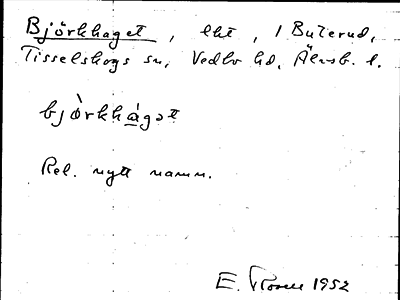 Björkhaget, lht, 1 Buterud,
Tisselskogs sn, Vedbo hd, Älvsb. l.
bjö̀rkhágət
Rel. nytt namn.
E. 1952